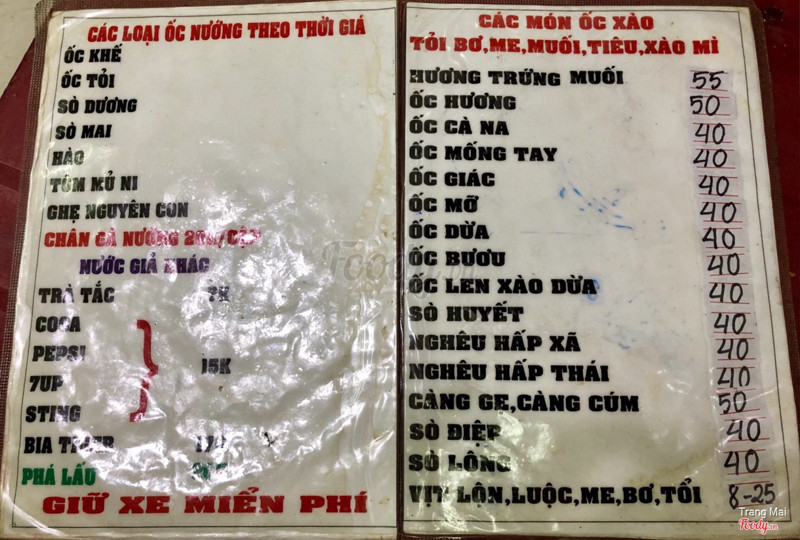 CÁC LOẠI ỐC NƯỚNG THEO THỜI GIÁ
ỐC KHẾ
ỐC TỎI
SÒ DƯƠNG
SÒ MAI
HÀO
TÔM MỦ NI
GHẸ NGUYÊN CON
CHÂN GÀ NƯỚNG
NƯỚC GIẢ KHÁC
TRÀ TẮC 7K
COCA
PEPSI
15K
7UP
STING
BIA
PHÁ LẤU
GIỮ XE MIỂN PHÍ
CÁC MÓN ỐC XÀO
TỎI BƠ,ME,MUỐI,TIÊU,XÀO MÌ
HƯƠNG TRỨNG MUỐI 55
ỐC HƯƠNG 50
ỐC CÀ NA 40
ỐC MỐNG TAY 40
ỐC GIÁC 40
ỐC MỠ 40
ỐC DỪA 40
ỐC BƯƠU 40
ỐC LEN XÀO DỪA 40
SÒ HUYẾT 40
NGHÊU HẤP XÃ 40
NGHÊU HẤP THÁI 40
CÀNG GẸ,CÀNG CÚM 50
SÒ ĐIỆP 40
SÒ LÔNG 40
VỊT LỘN,LUỘC,ME,BƠ,TỎI 8-25
Trang Mai
Foody.vn